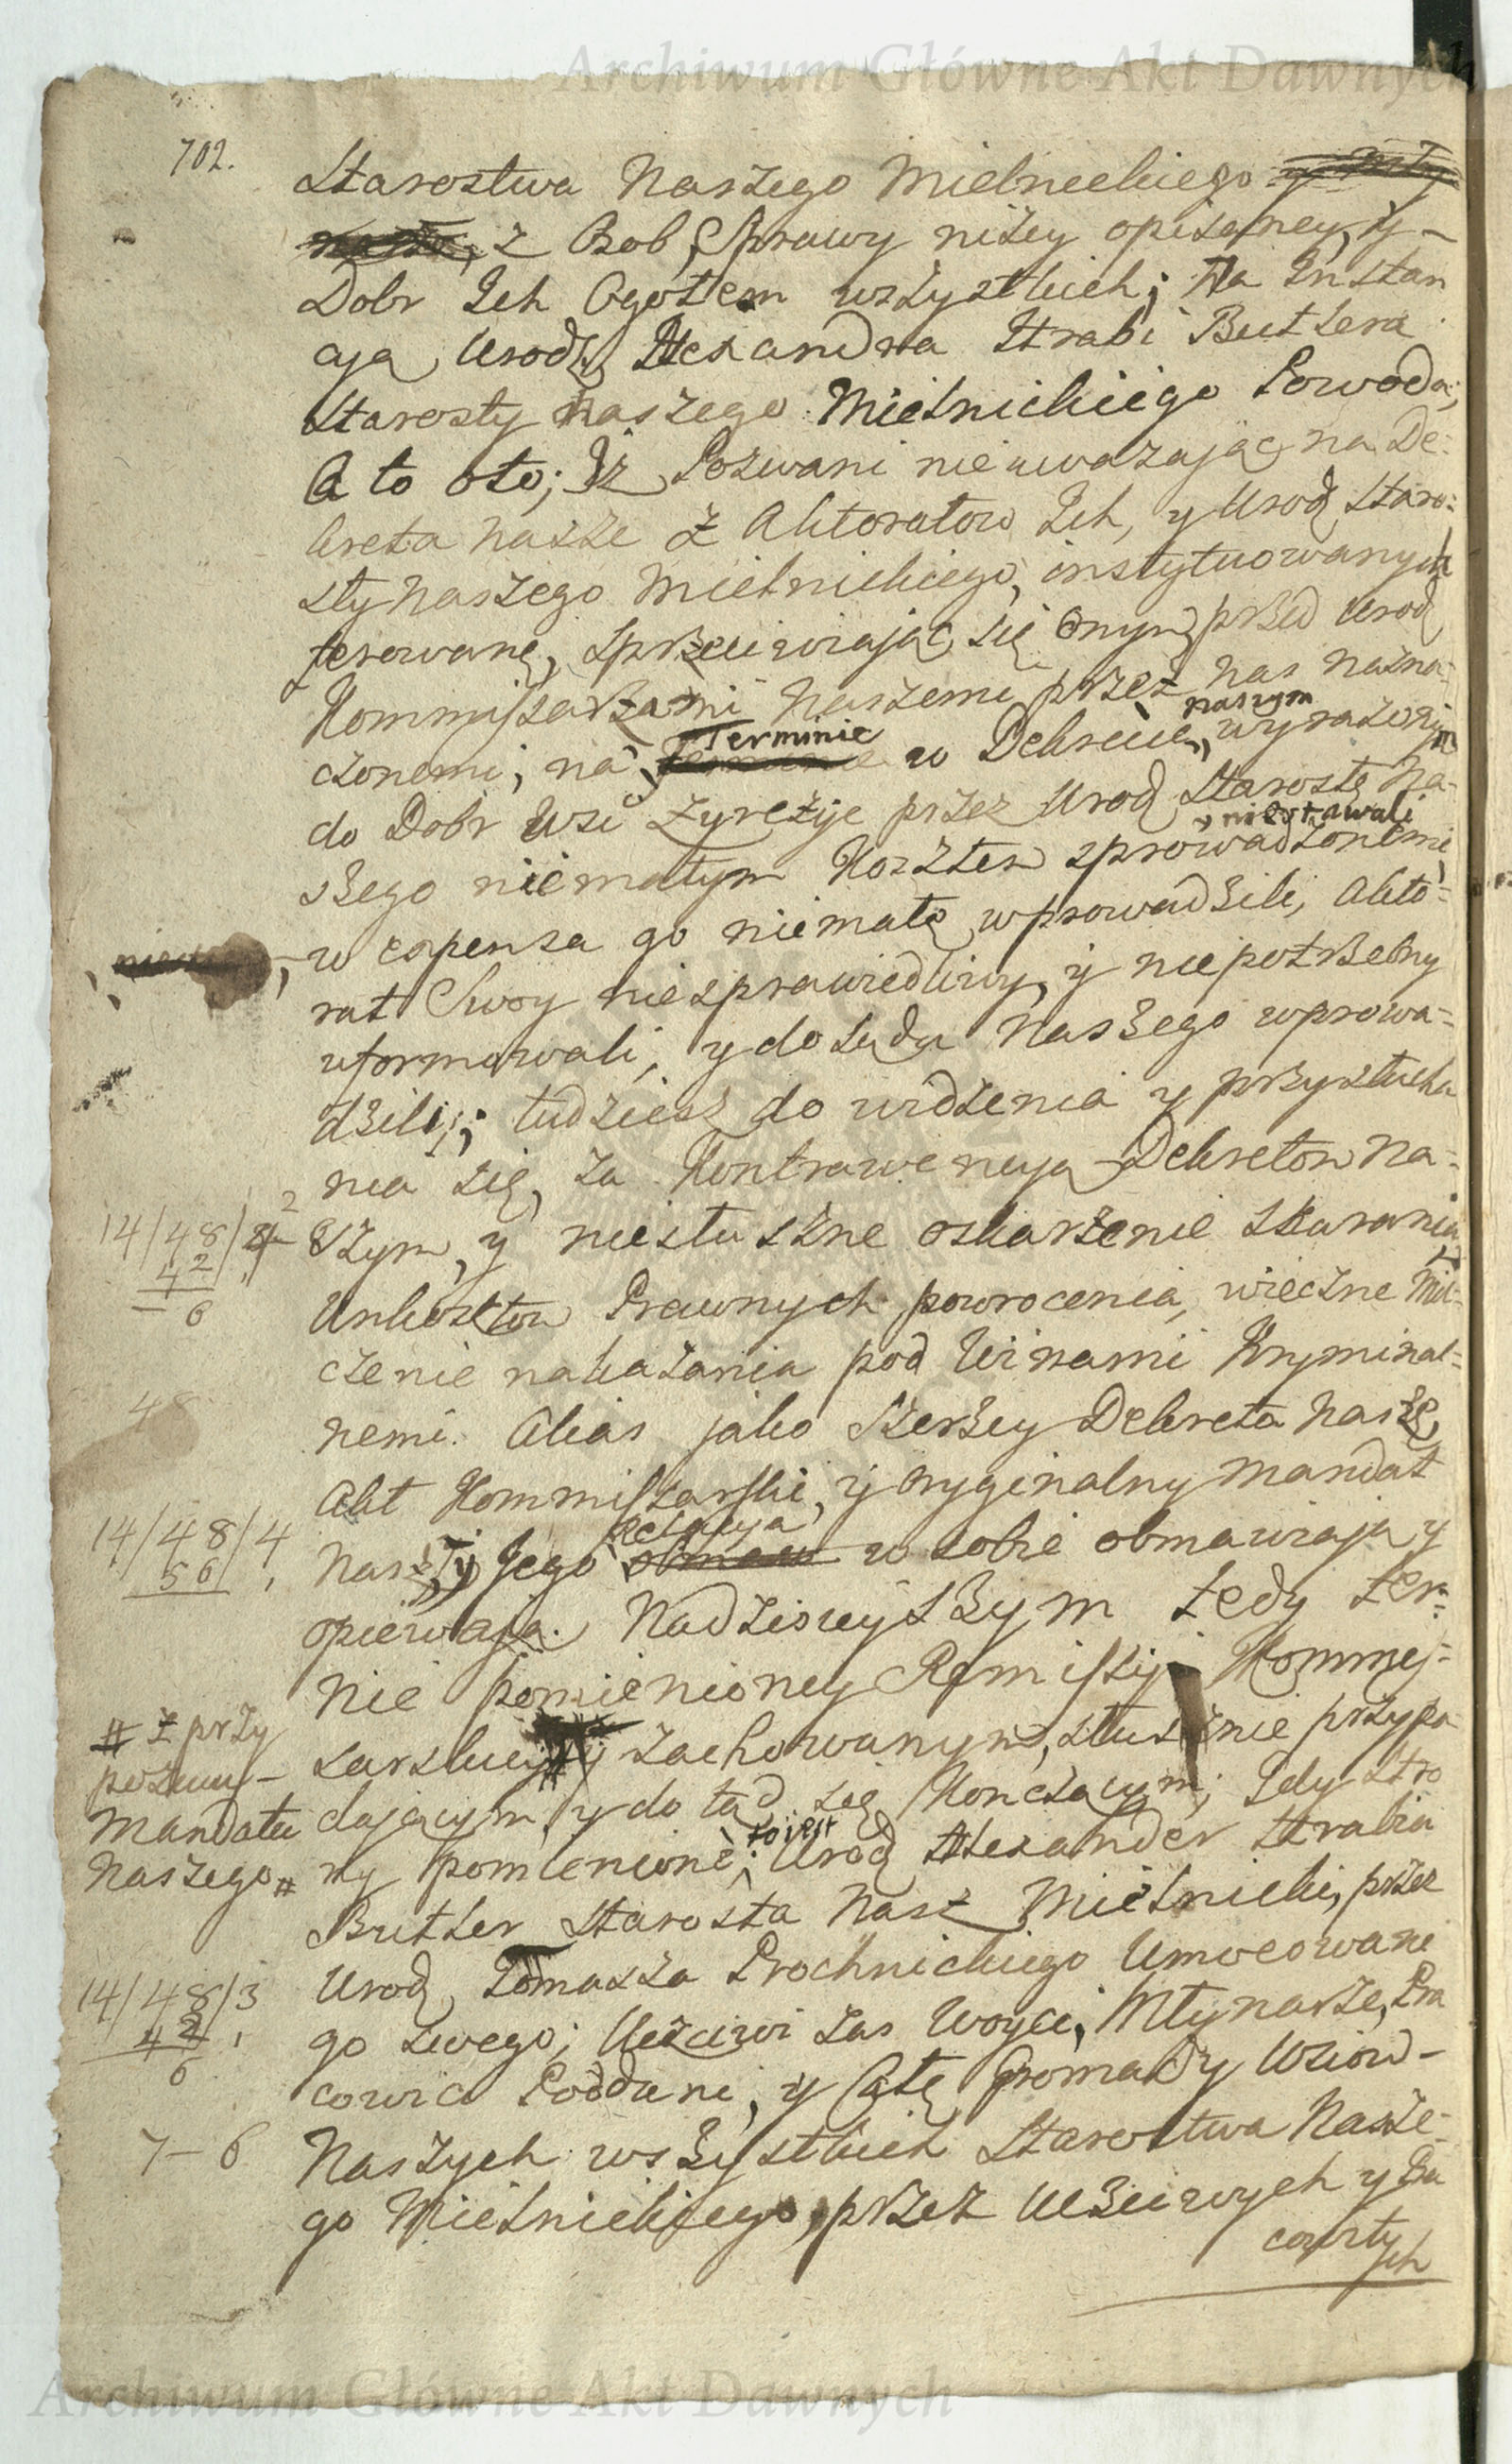 Archiwum Główne Akt Dawnych
702.
Starostwa Naszego Mielnickiego
z Osob, Sprawy niżey opisaney, y
Dobr Ich Ogołem wszystkich; Na Instan
cyą Urodz Alexandra Hrabi Butlera
Starosty naszego Mielnickiego Powoda;
A to oto; Iż Pozwani nieuwazając na De:
kreta nasze z Aktoratow Ich, y Urod Staro:
sty naszego Mielnickiego, instytuowanych
ferowane, sprzeciwiając się onym, przed Urod
Kommissarzami Naszemi przez nas nazna:
naszym
czonemi, na Terminie w Dekrecie, wyrażonym
do Dobr Wsi Zyrczyc przez Urod Starostę Na-
niestawali
szego niemałym Kosztem sprowadzonemi
w expensa go niemałe wprowadzili, Akto=
rat Swoy niesprawiedliwy, y niepotrzebny
uformowali, y do Sądu Naszego wprowa=
dzili; tudziesz do widzenia y przysłucha
nia się, za Kontrawencyą Dekretow Na=
14/48/2
42
6
szym, y niesłuszne oskarżenie skarania
Unkosztow Prawnych powrocenia, wieczne Mil=
czenie nakazania pod Winami Kryminal=
48
nemi. Alias jako Szerzey Dekreta Nasze,
Akt Kommissarski, y oryginalny Mandat
14/48/4
56
relacya
Nasz, y Jego w sobie obmawiają y
opiewają. Nadzisieyszym tedy ter=
nie pomienioney Remissyi Kommis=
sarskiey zachowanym, słusznie przypa
# z przy
pozwu
Mandatu
Naszego #
dającym, y do tąd się Kończącym; Gdy Stro
to iest
ny pomienione; Urod Alexander Hrabia
Butler Starosta Nasz Mielnicki, przez
14/48/3
42
6
Urod Tomasza Prochnickiego Umocowane
go swego; Uczciwi zas Woyci, Młynarze, Pra
cowici Poddani, y Całe Gromady Wsiow
7-6
Naszych wszystkich Starostwa Nasze=
go Mielnickiego, przez Uczciwych y Pra
cowitych
Archiwum Główne Akt Dawnych